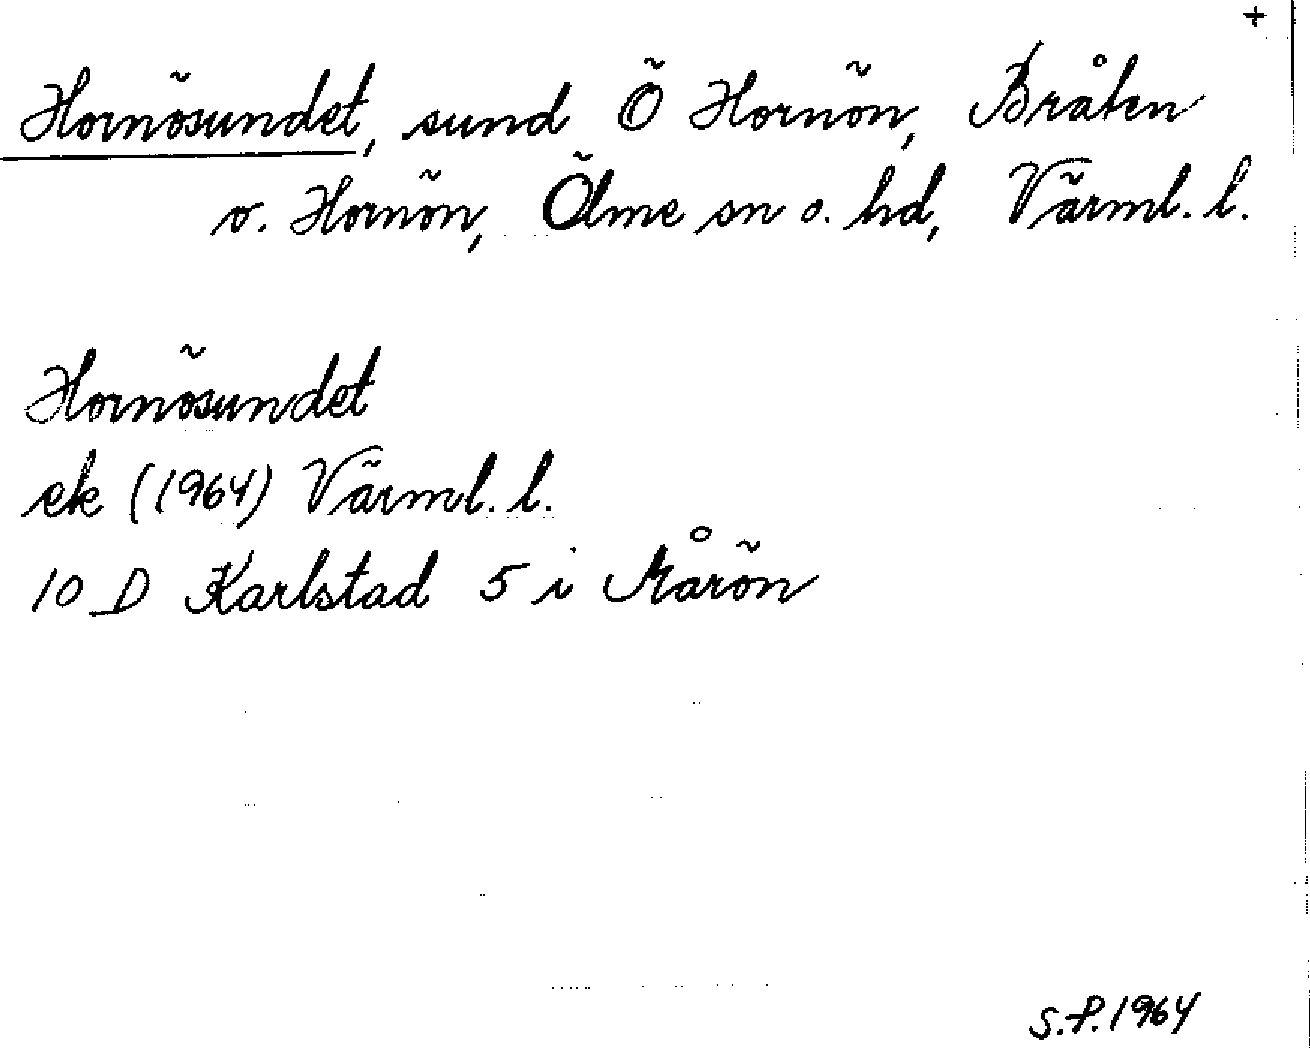 +
Hornösundet, sund Ö Hornön, Bråten
o. Hornön, Ölme sn o. hd, Värml. l.
Hornösundet
ek (1964) Värml. l.
10 D Karlstad 5 i Åråön
S.P. 1964